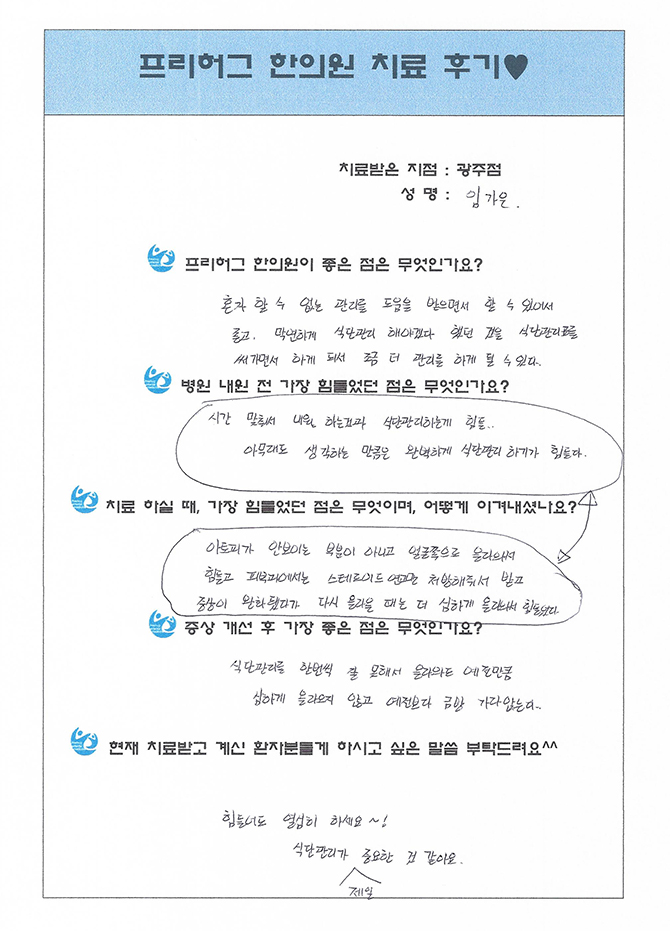 프리허그 한의원 치료 후기♥
치료받은 지점 : 광주점
성 명 : 임가은.
프리허그 한의원이 좋은 점은 무엇인가요?
혼자 할 수 없는 관리를 도움을 받으면서 할 수 있어서
좋고. 막연하게 식단관리 해야겠다 했던 것을 식단관리표를
써가면서 하게 되서 조금 더 관리를 하게 될 수 있다.
병원 내원 전 가장 힘들었던 점은 무엇인가요?
시간 맞춰서 내원 하는것과 식단관리하는게 힘듦..
아무래도 생각하는 만큼은 완벽하게 식단관리 하기가 힘들다.
치료 하실 때, 가장 힘들었던 점은 무엇이며, 어떻게 이겨내셨나요?
아토피가 안보이는 부분이 아니고 얼굴쪽으로 올라와서
힘들고 피부과에서는 스테로이드 연고만 처방해줘서 받고
증상이 완화됐다가 다시 올라올 때는 더 심하게 올라와서 힘들었다.
증상 개선 후 가장 좋은 점은 무엇인가요?
식단관리를 한번씩 잘 못해서 올라와도 예전만큼
심하게 올라오지 않고 예전보다 금방 가라앉는다..
현재 치료받고 계신 환자분들게 하시고 싶은 말씀 부탁드려요^^
힘들어도 열심히 하세요~!
식단관리가 중요한 것 같아요.
제일